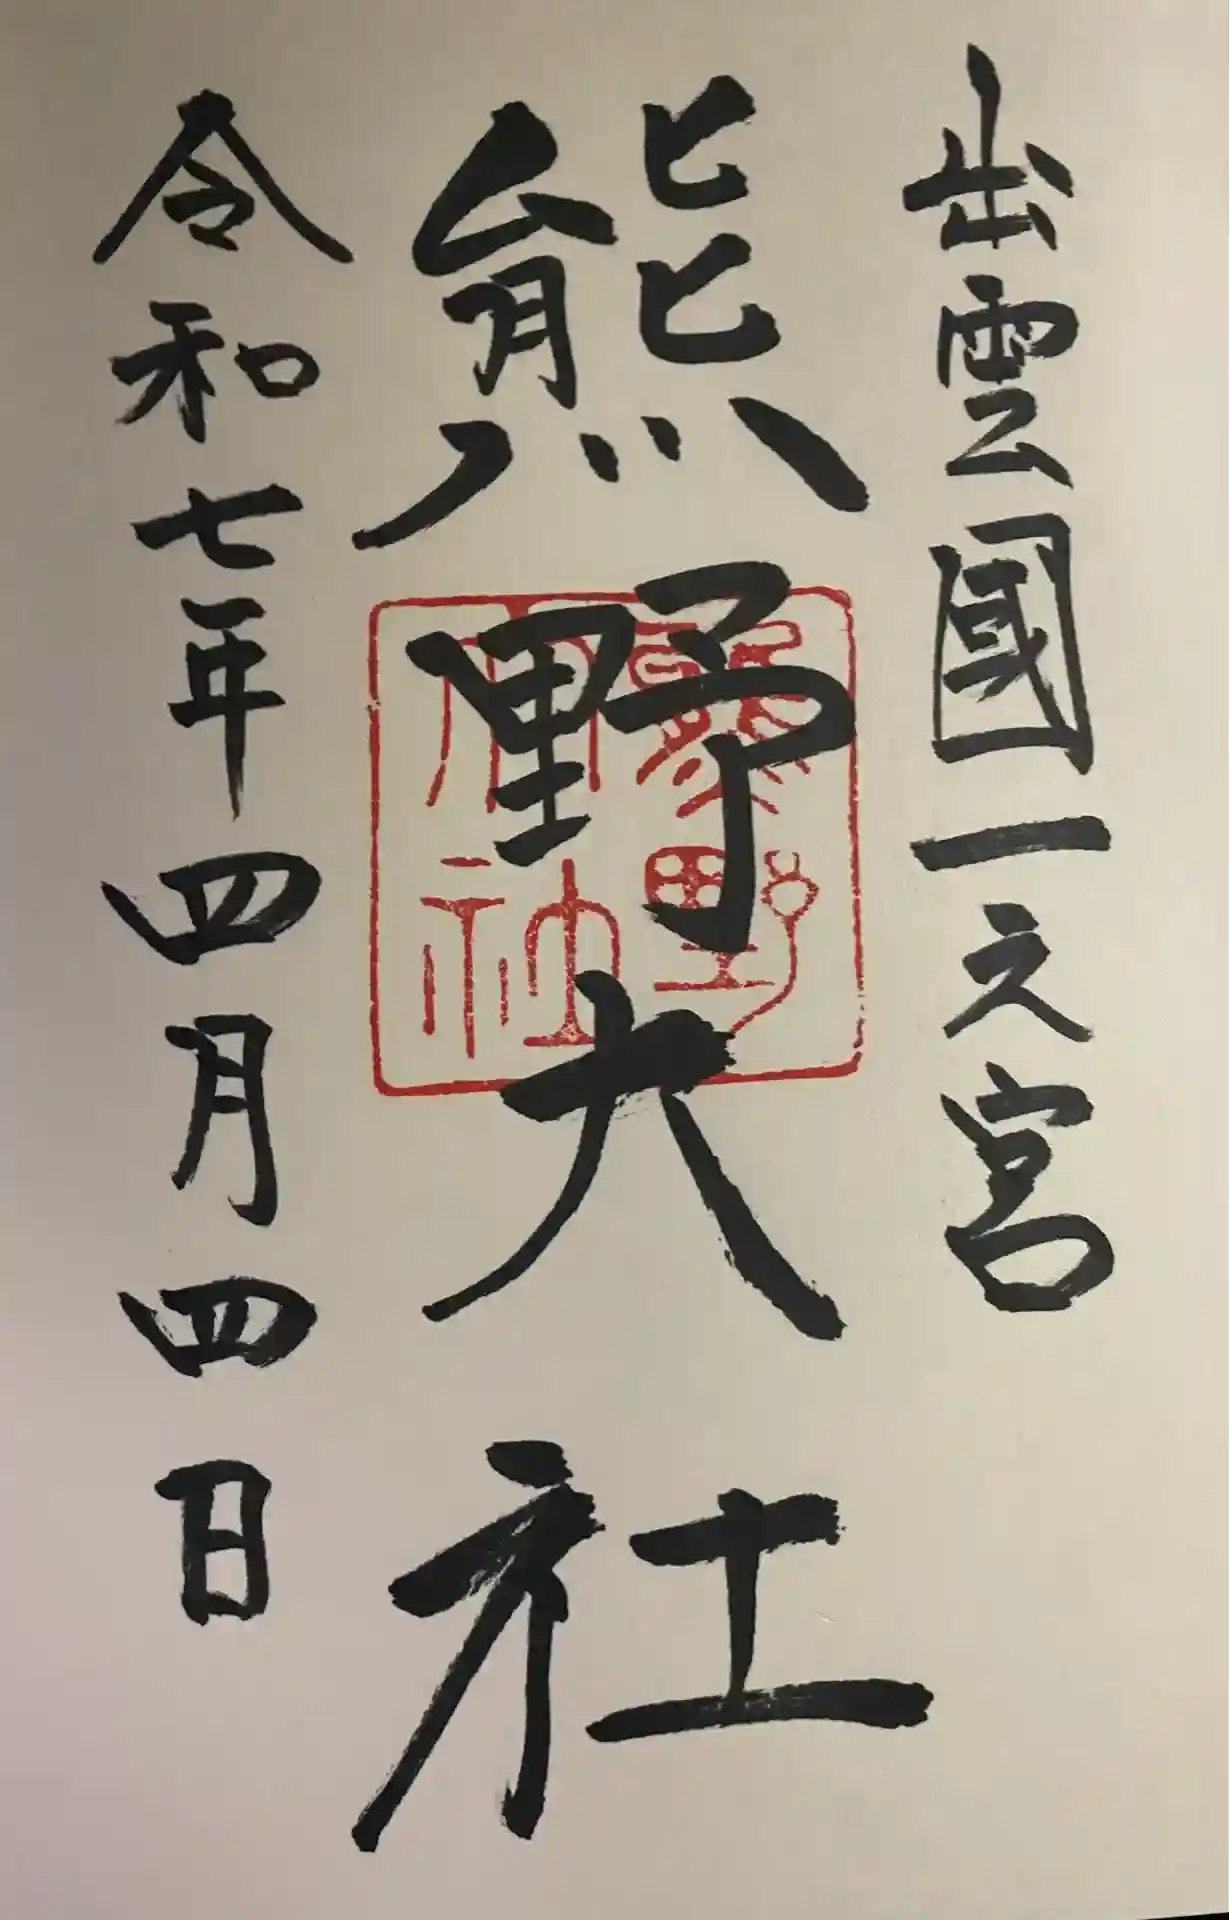 出雲國一之宮
熊野大社
熊野
神社
令和七年四月四日